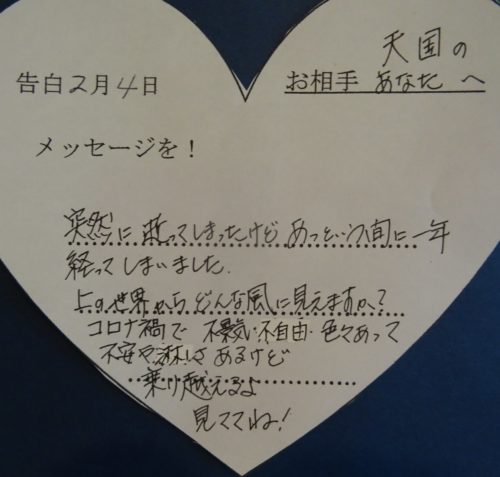 告白2月4日
天国の
お相手 あなた へ
メッセージを!
突然に逝ってしまったけど あっという間に一年
経ってしまいました.
上の世界から どんな風に見えますか?
コロナ禍で 不景気・不自由・色々あって
不安や淋しさ あるけど
乗り越えるよ
見ててね!